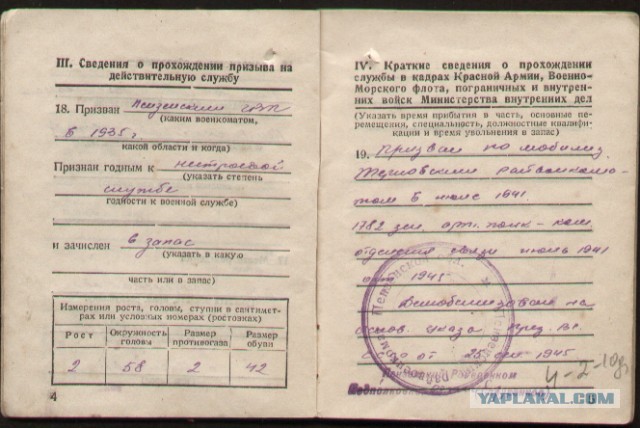 III. Сведения о прохождении призыва на
действительную службу
18. Призван Пензенским ГВК
(каким военкоматом,
в 1935 г.
какой области и когда)
Признан годным к нестроевой
(указать степень
службе
годности к военной службе)
и зачислен в запас
(указать в какую
часть или в запас)
Измерения роста, головы, ступни в сантимет-
рах или условных номерах (ростовках)
Рост Окружность головы Размер противогаза Размер обуви
2 58 2 42
4
IV. Краткие сведения о прохождении
службы в кадрах Красной Армии, Военно-
Морского флота, пограничных и внутрен-
них войск Министерства внутренних дел
(Указать время прибытия в часть, основные пе-
ремещения, специальность, должностные квалифи-
кации и время увольнения в запас)
19. Призван по мобилиз.
райвоенкома-
том в июне 1941
1782 зен. арт. полк – ком.
отделения связи июнь 1941
1945
Демобилизован на
основ. указа през. В.С.
от 25 1945
YAPLAKAL.COM